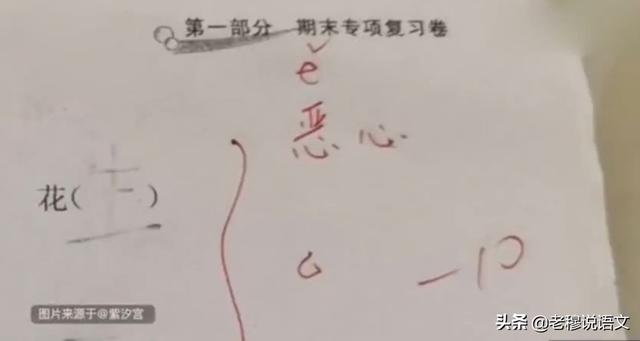 第一部分 期末专项复习卷
ě
恶心.
花(士)
-10
图片来源于@紫汐宫
头条 @老穆说语文